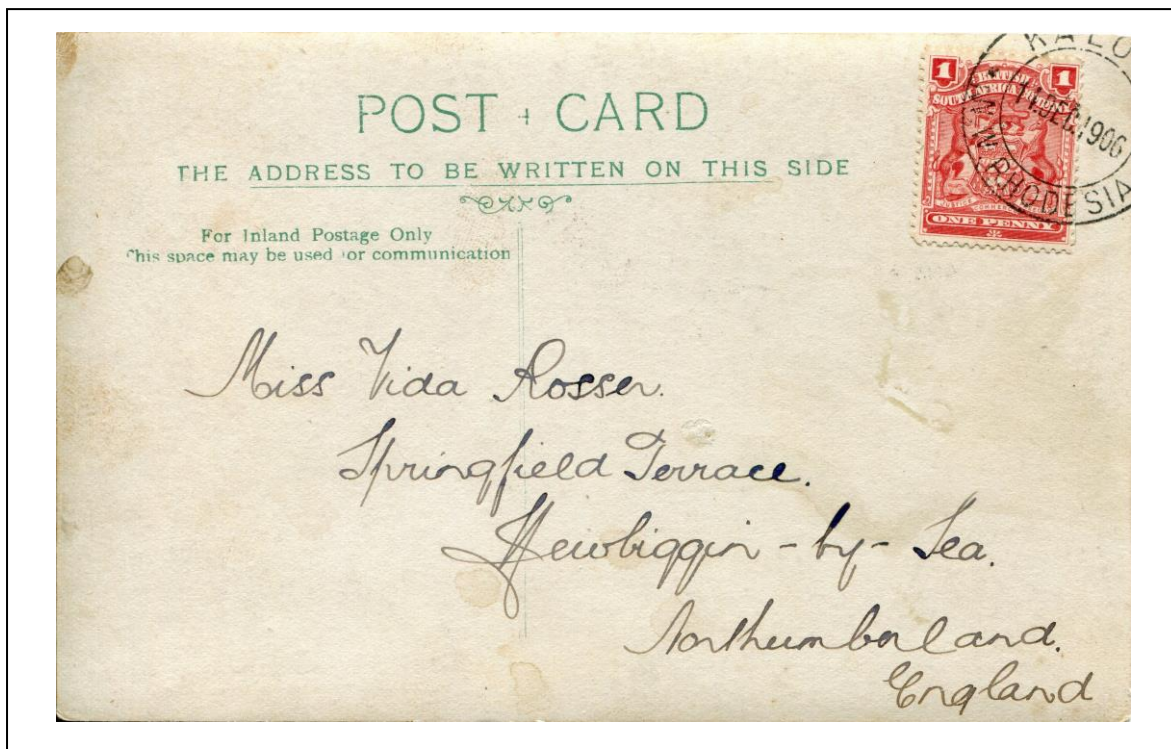 POST CARD
THE ADDRESS TO BE WRITTEN ON THIS SIDE
For Inland Postage Only
This space may be used for communication
1 1
BRITISH
SOUTH AFRICA COMPANY
ONE PENNY
KALO
11 DEC 1906
N.W. RHODESIA
Miss Vida Rosser.
Springfield Terrace.
Newbiggin-by-Sea.
Northumberland.
England